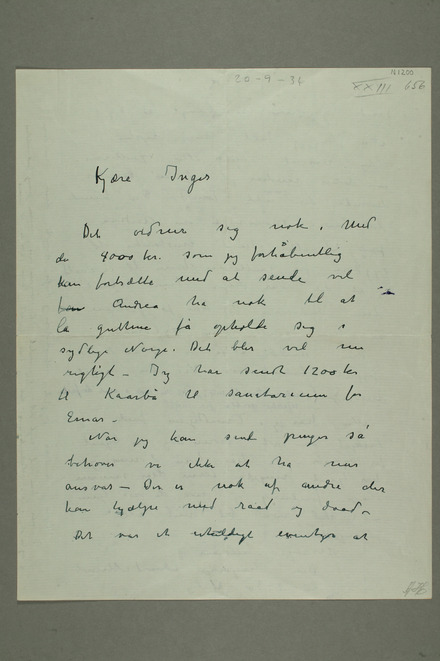 N1200
20-9-34
XXIII 656
Kjære Inger
Det ordner sig nok. Med
de 4000 kr. som jeg forhåbentlig
kan fortsætte med at sende vil
Andrea ha nok til at
la guttene få opholde sig i
sydlige Norge. Det blir vel
rigtigt – Jeg har sendt 1200 kr
til Kaarbö til sanatorium for
Einar –
Når jeg kan sende penger så
behøver vi ikke at ha mer
ansvar – Der er nok af andre der
kan hjælpe med raad og daad –
Det var et eventyr at